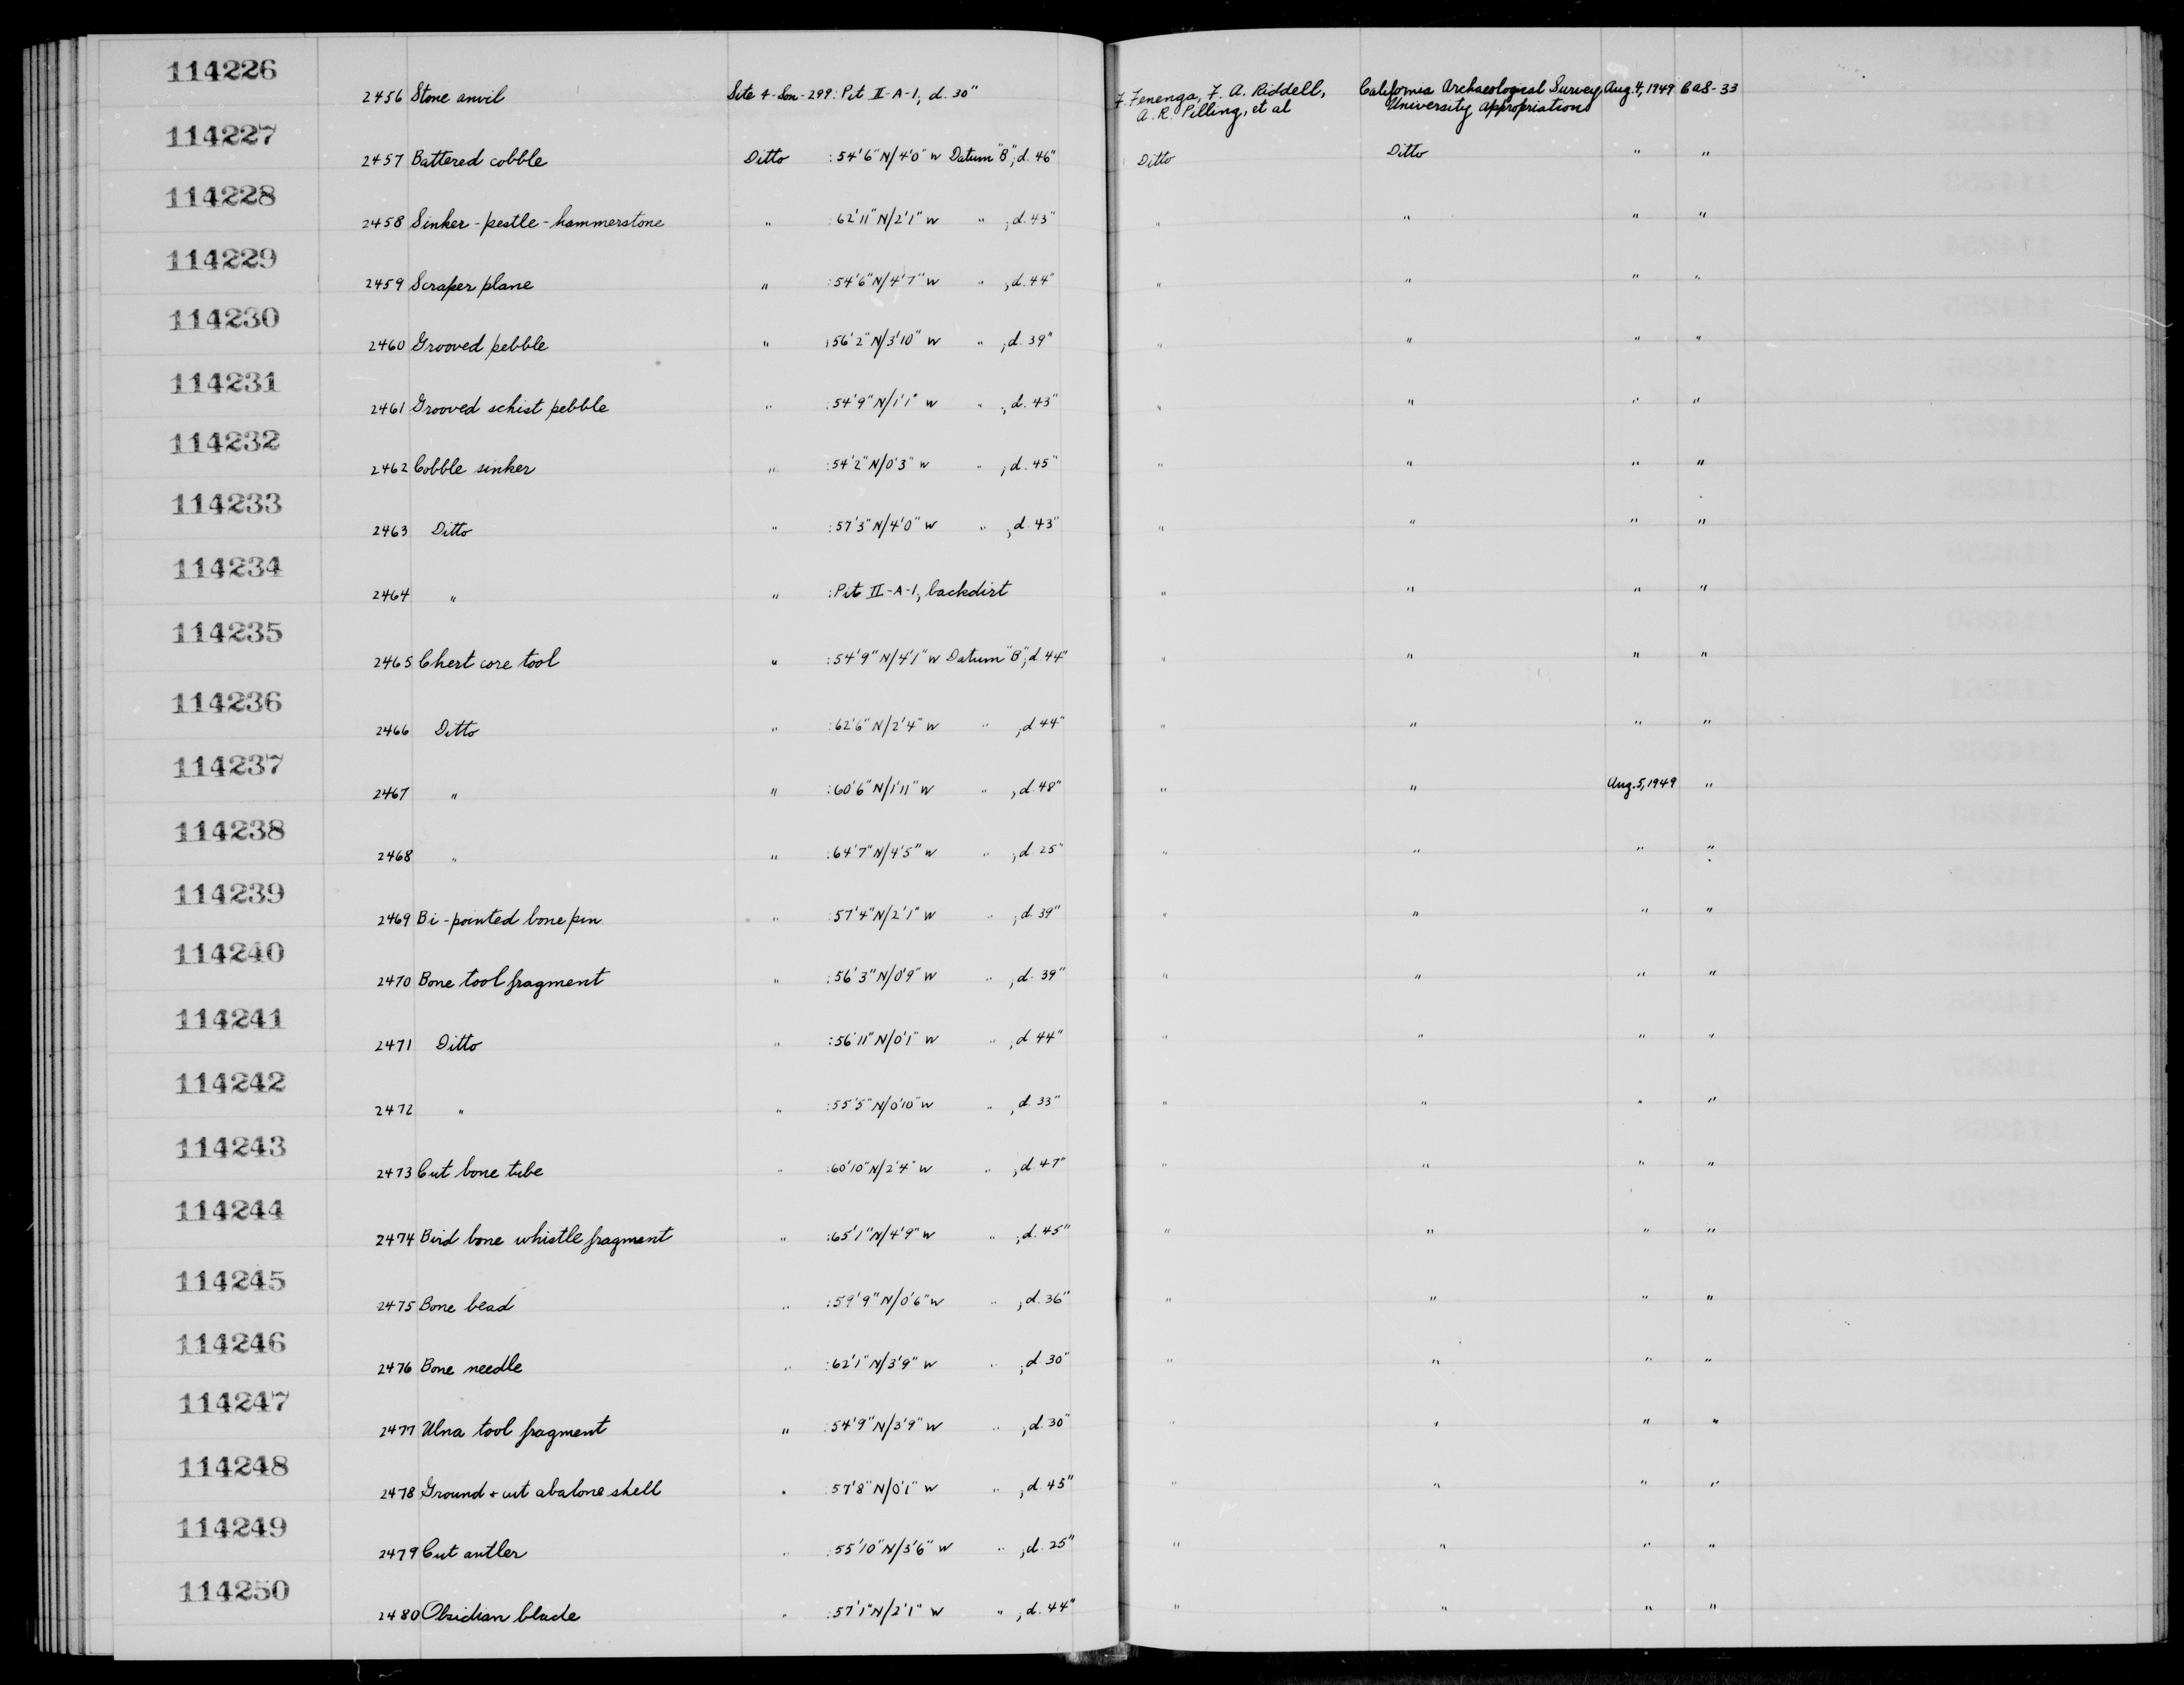 114226
2456 Stone anvil Site 4-Son-299: Pit II-A-1, d. 30" F. Fenenga, F. A. Riddell, California Archaeological Survey, Aug. 4, 1949 CAS-33
A. R. Pilling, et al University Appropriations
114227
2457 Battered cobble Ditto :54'6"N/4'0"W Datum "B"; d. 46" Ditto Ditto " "
114228
2458 Sinker-pestle-hammerstone " :62'11"N/2'1"W " ; d. 43" " " " "
114229
2459 Scraper plane " :54'6"N/4'7"W " ; d. 44" " " " "
114230
2460 Grooved pebble " :56'2"N/3'10"W " ; d. 39" " " " "
114231
2461 Grooved schist pebble " :54'9"N/1'1"W " ; d. 43" " " " "
114232
2462 Cobble sinker " :54'2"N/0'3"W " ; d. 45" " " " "
114233
2463 Ditto " :57'3"N/4'0"W " ; d. 43" " " " "
114234
2464 " " :Pit II-A-1, backdirt " " " "
114235
2465 Chert core tool " :54'9"N/4'1"W Datum "B"; d. 44" " " " "
114236
2466 Ditto " :62'6"N/2'4"W " ; d 44" " " " "
114237
2467 " " :60'6"N/1'11"W " ; d. 48" " " Aug. 5, 1949 "
114238
2468 " " :64'7"N/4'5"W " ; d 25" " " " "
114239
2469 Bi-pointed bone pin " :57'4"N/2'1"W " ; d. 39" " " " "
114240
2470 Bone tool fragment " :56'3"N/0'9"W " ; d. 39" " " " "
114241
2471 Ditto " :56'11"N/0'1"W " ; d 44" " " " "
114242
2472 " " :55'5"N/0'10"W " ; d. 33" " " " "
114243
2473 Cut bone tube " :60'10"N/2'4"W " ; d. 47" " " " "
114244
2474 Bird bone whistle fragment " :65'1"N/4'9"W " ; d. 45" " " " "
114245
2475 Bone bead " :59'9"N/0'6"W " ; d. 36" " " " "
114246
2476 Bone needle " :62'1"N/3'9"W " ; d. 30" " " " "
114247
2477 Ulna tool fragment " :54'9"N/3'9"W " ; d. 30" " " " "
114248
2478 Ground + cut abalone shell " :57'8"N/0'1"W " ; d. 45" " " " "
114249
2479 Cut antler " :55'10"N/3'6"W " ; d. 25" " " " "
114250
2480 Obsidian blade " :57'1"N/2'1"W " ; d. 44" " " " "